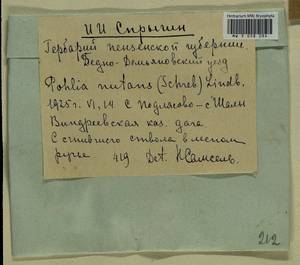 И И Спрыгин
Гербарий пензенской губернии.
Бедно-Демьяновский уезд
Pohlia nutans (Schreb) Lindb.
1925 г. VI, 14. С Подлясово - с Шалы
Виндреевская каз. дача
С сгнившего ствола в лесном
ручье 419 Det. К Самсель.
212